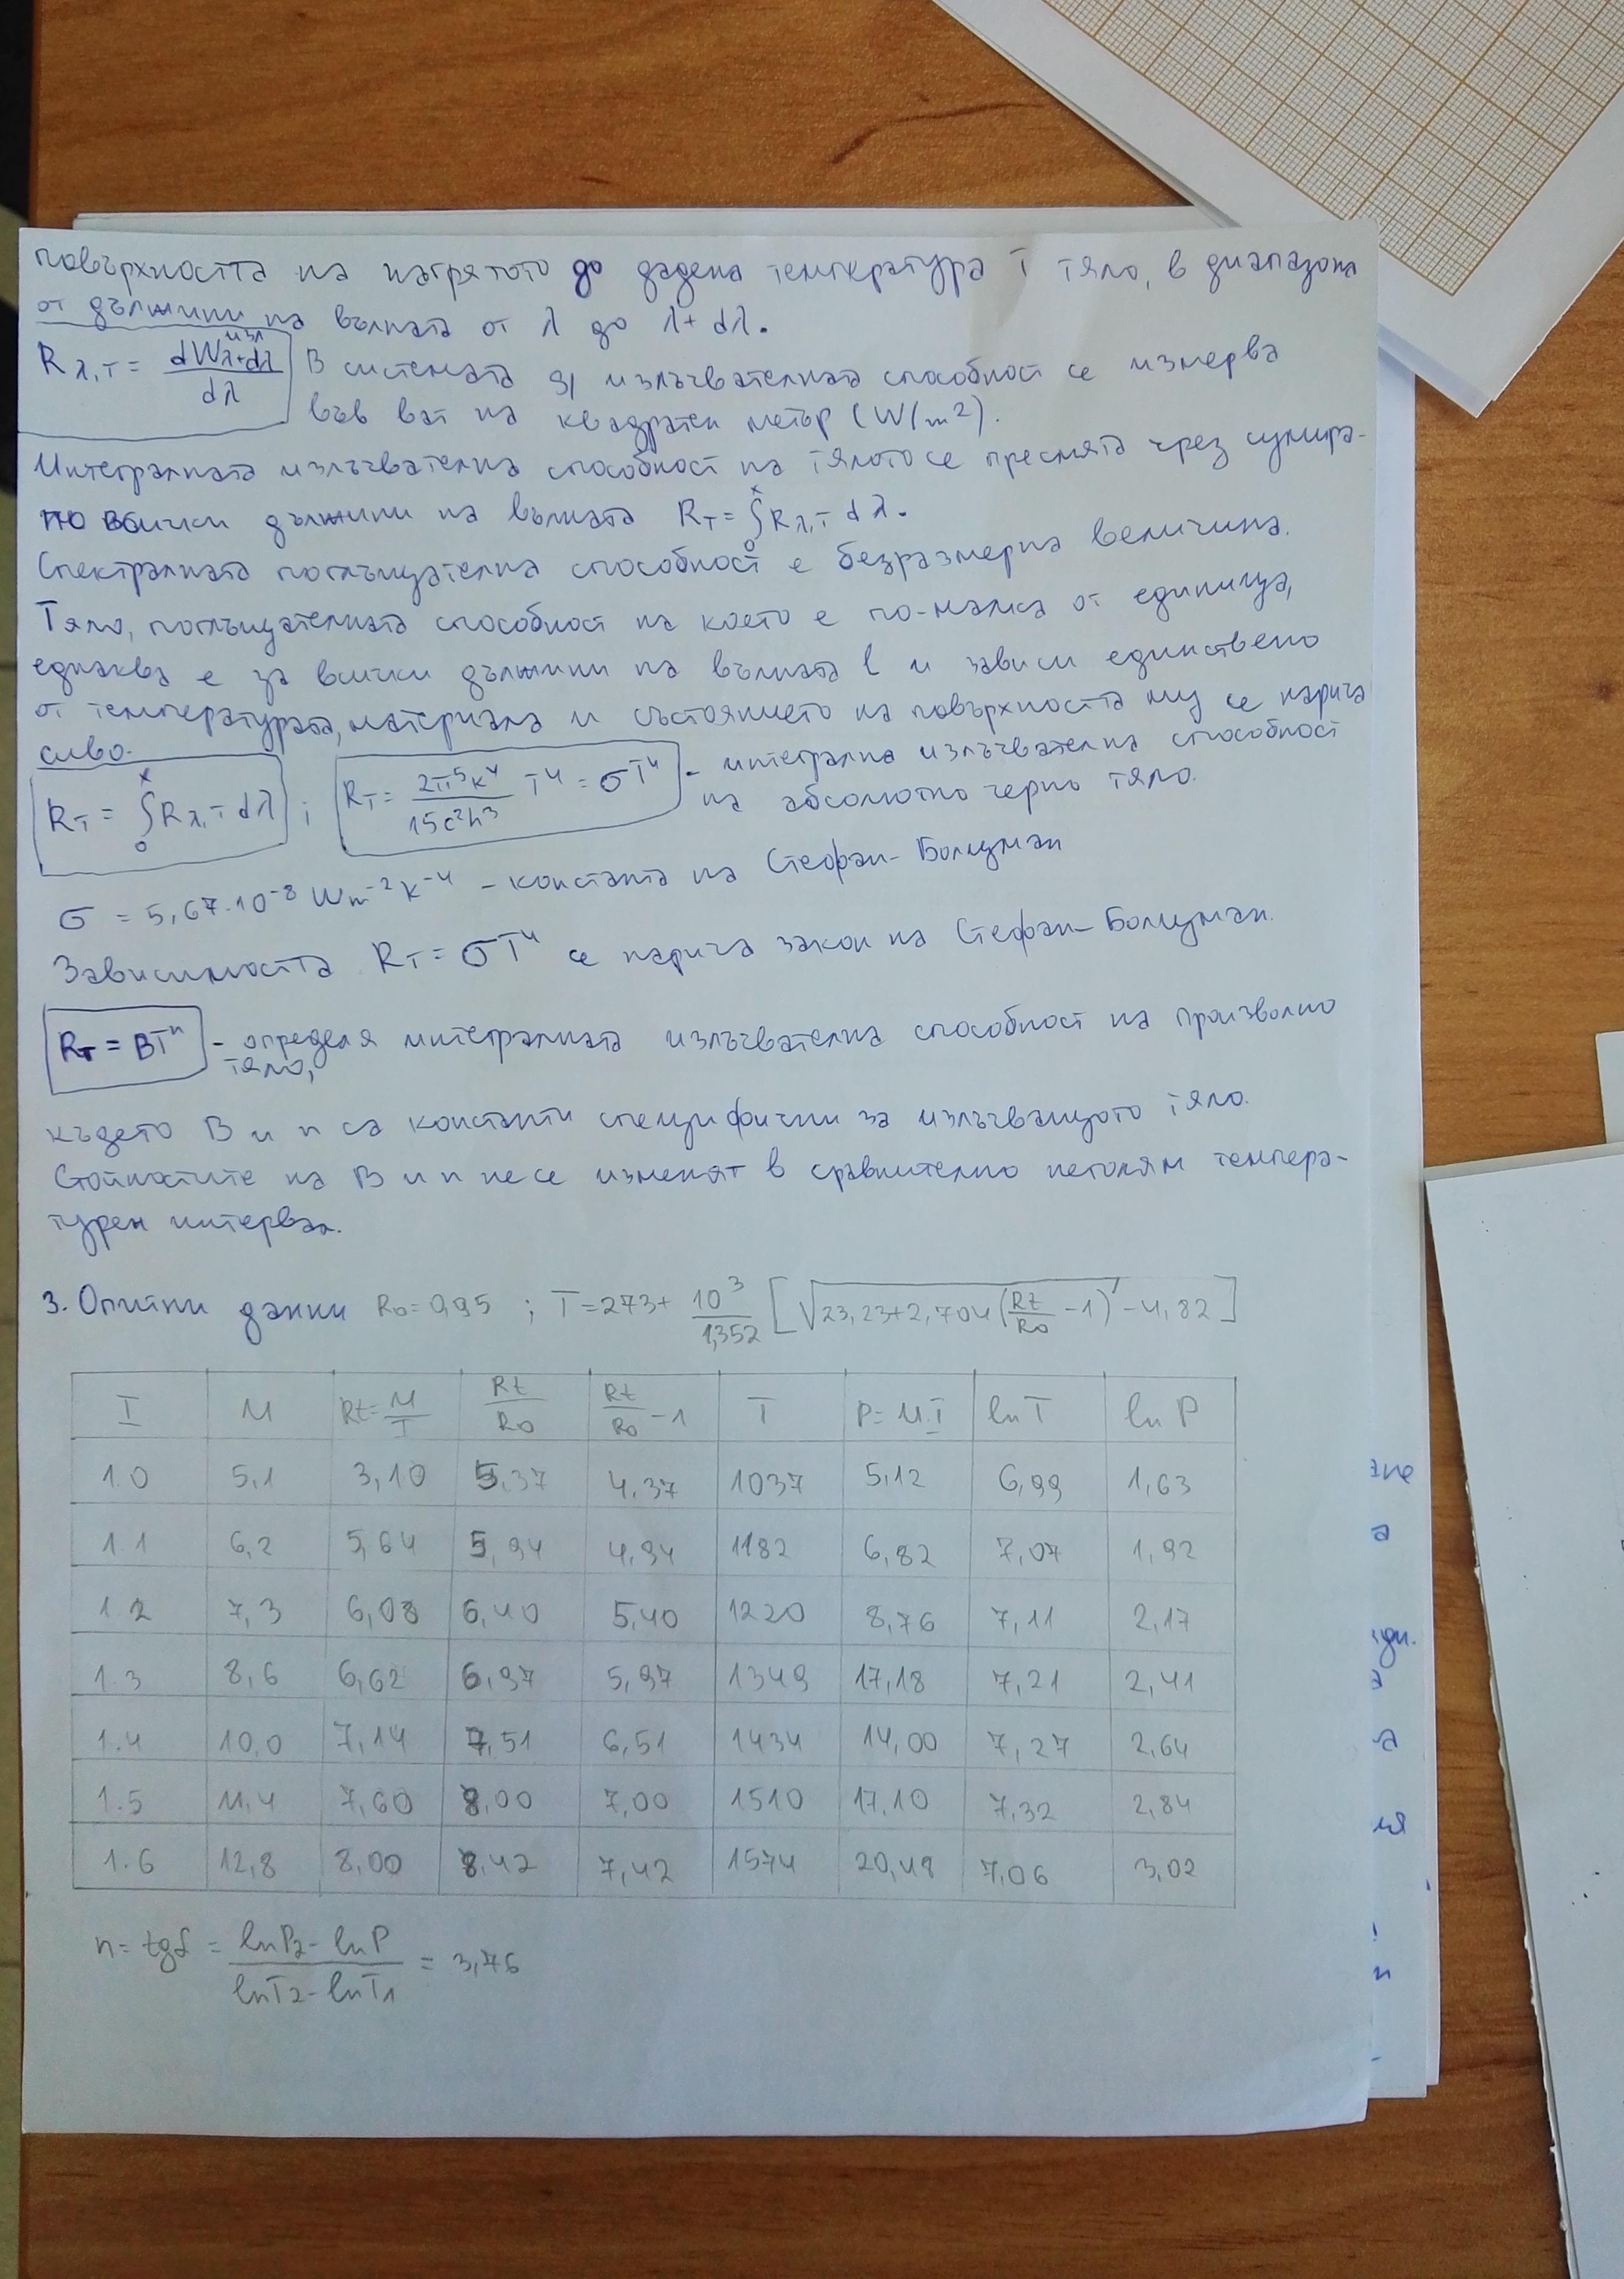 повърхността на нагрятото до дадена температура T тяло, в диапазона
от дължини на вълната от λ до λ+dλ.
Rλ,T = dWλ+dλ^изл / dλ В системата SI излъчвателната способност се измерва
във ват на квадратен метър (W/m²).
Интегралната излъчвателна способност на тялото се пресмята чрез сумира-
по всички дължини на вълната RT = ∫₀ˣ Rλ,T dλ.
Спектралната поглъщателна способност е безразмерна величина.
Тяло, поглъщателната способност на което е по-малка от единица,
еднаква е за всички дължини на вълната l и зависи единствено
от температурата, материала и състоянието на повърхността му се нарича
сиво.
RT = ∫₀ˣ Rλ,T dλ ; RT = 2π⁵k⁴ / 15c²h³ T⁴ = σT⁴ - интегрална излъчвателна способност
на абсолютно черно тяло.
σ = 5,67.10⁻⁸ Wm⁻²K⁻⁴ - константа на Стефан-Болцман
Зависимостта RT = σT⁴ се нарича закон на Стефан-Болцман.
RT = BTⁿ - определя интегралната излъчвателна способност на произволно
тяло,
където B и n са константи специфични за излъчващото тяло.
Стойностите на B и n не се изменят в сравнително неголям темпера-
турен интервал.
3. Опитни данни R₀=0,95 ; T=273+ 10³/1,352 [√23,23+2,704(Rt/R₀ -1) -4,82]
I U Rt=U/I Rt/R₀ Rt/R₀ -1 T P=U.I lnT lnP
1.0 5,1 3,10 5,37 4,37 1037 5,12 6,99 1,63
1.1 6,2 5,64 5,94 4,94 1182 6,82 7,07 1,92
1.2 7,3 6,08 6,40 5,40 1220 8,76 7,11 2,17
1.3 8,6 6,62 6,97 5,97 1349 17,18 7,21 2,41
1.4 10,0 7,14 7,51 6,51 1434 14,00 7,27 2,64
1.5 11,4 7,60 8,00 7,00 1510 17,10 7,32 2,84
1.6 12,8 8,00 8,42 7,42 1574 20,48 7,06 3,02
n = tgα = lnP₂ - lnP / lnT₂ - lnT₁ = 3,76